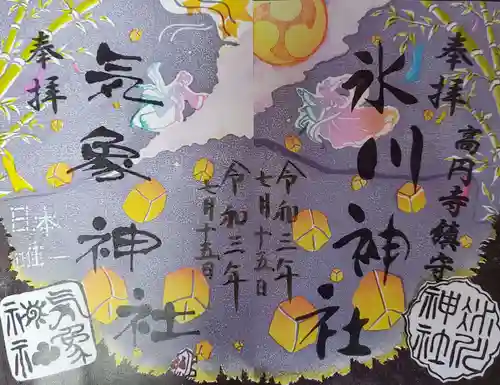 奉拝
高円寺鎮守
氷川神社
令和三年
七月十五日
氷川神社
奉拝
気象神社
令和三年
七月十五日
日本唯一
気象神社